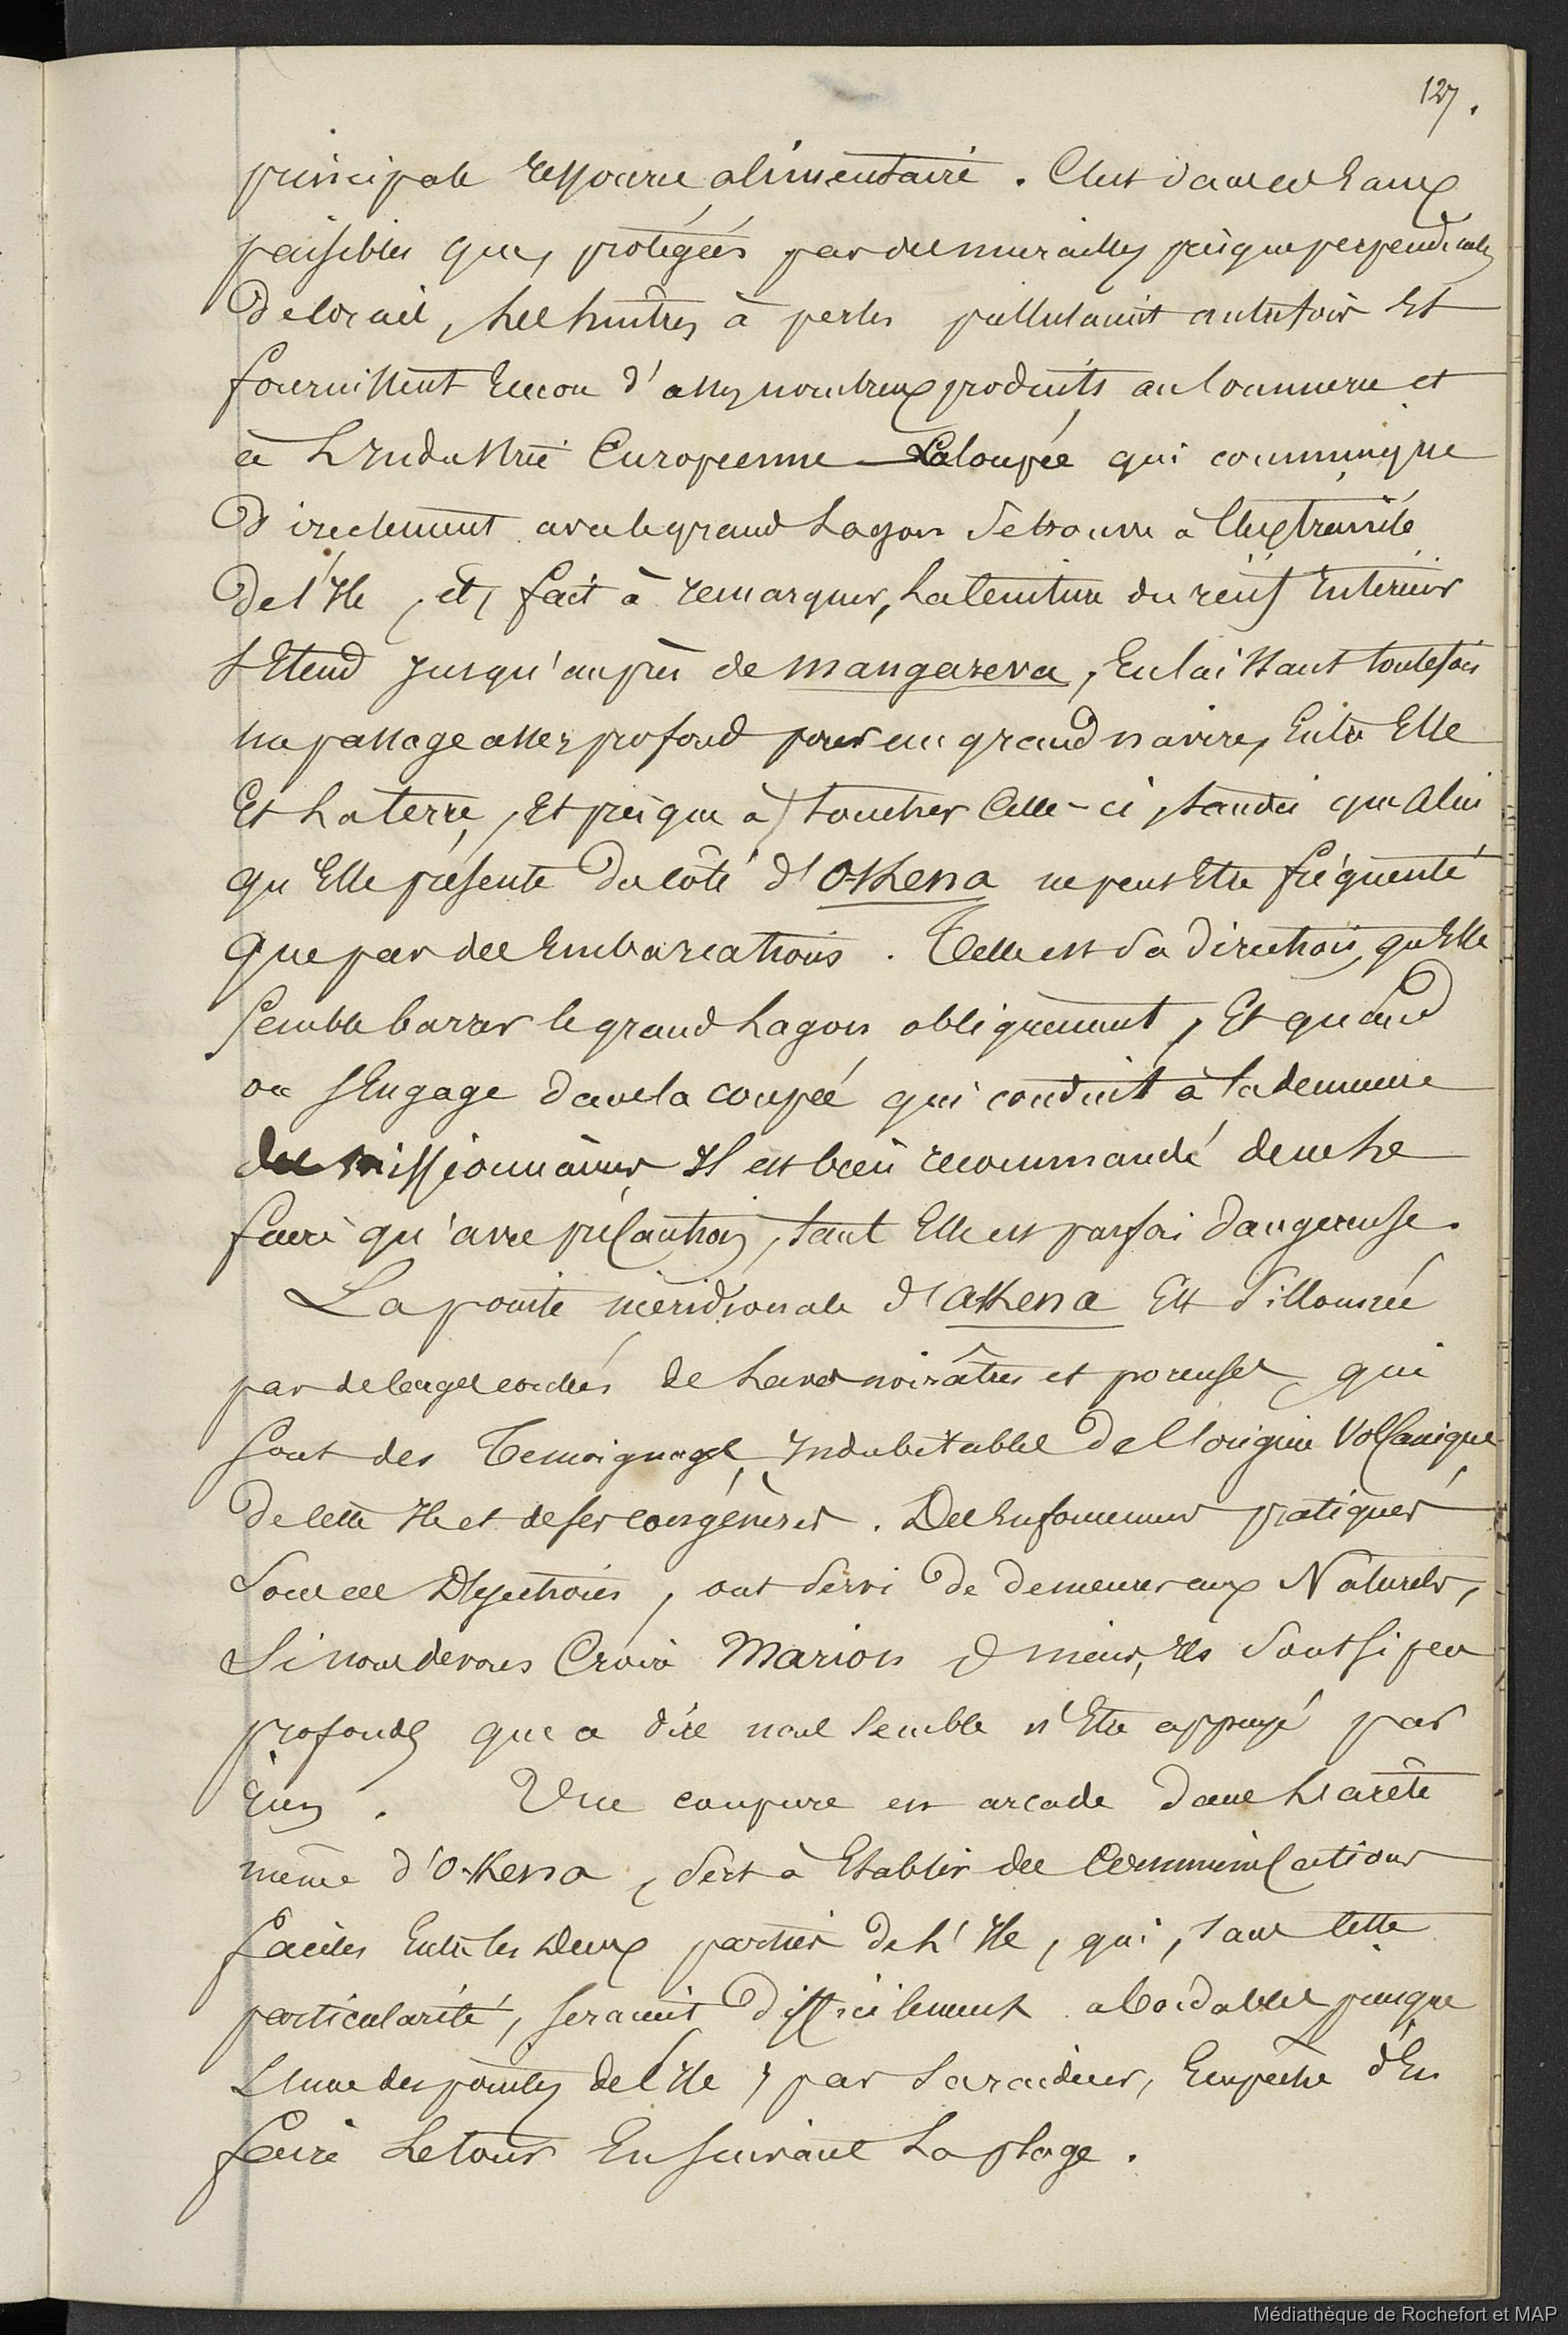 127.
principale ressource alimentaire. C'est dans ces Eaux
paisibles que, protégées par des murailles presque perpendiculaires
De Corail, les huitres à perles pullulaient autrefois Et
fournissent Encore d'assez nombreux produits au Commerce et
à L'Industrie Européenne La Coupée qui communique
Directement avec le grand Lagon se trouve à l'Extrémité
De l'Ile, et, fait à remarquer, La Ceinture du récif Intérieur
s'Etend jusqu'auprès de Mangareva, En laissant toutefois
un passage assez profond pour un grand navire, Entre Elle
Et La terre, Et presque à toucher Celle-ci, tandis que Celui
qu'Elle présente Du côté d'O-Kena ne peut Etre fréquenté
Que par des Embarcations. Telle est sa Direction, qu'Elle
semble barrer le grand Lagon obliquement, Et quand
on s'Engage dans la coupée qui conduit à la demeure
des Missionnaires Il est bien recommandé de ne le
faire qu'avec précaution, tant Elle est parfois Dangereuse.
La pointe méridionale d'AKena Est sillonnée
par de larges coulées de Laves noirâtres et poreuses, qui
sont des Temoignages Indubitables De l'origine Volcanique
De cette Ile et de ses congénères. Des Enfoncemens pratiqués
sous ces Déjections, ont servi De Demeures aux Naturels,
Si nous devons Croire Marion mais, Ils sont si peu
profonds que a dire nous semble n'Etre appuyé par
rien. Une coupure en arcade Dans L'arête
même d'O-Kena, sert à Etablir des Communications
faciles Entre les Deux parties De L'Ile, qui, sans cette
particularité, seraient Difficilement abordables puisque
L'une des pointes de l'Ile, par sa raideur, Empêche d'En
faire Le tour En suivant La plage.
Médiathèque de Rochefort et MAP